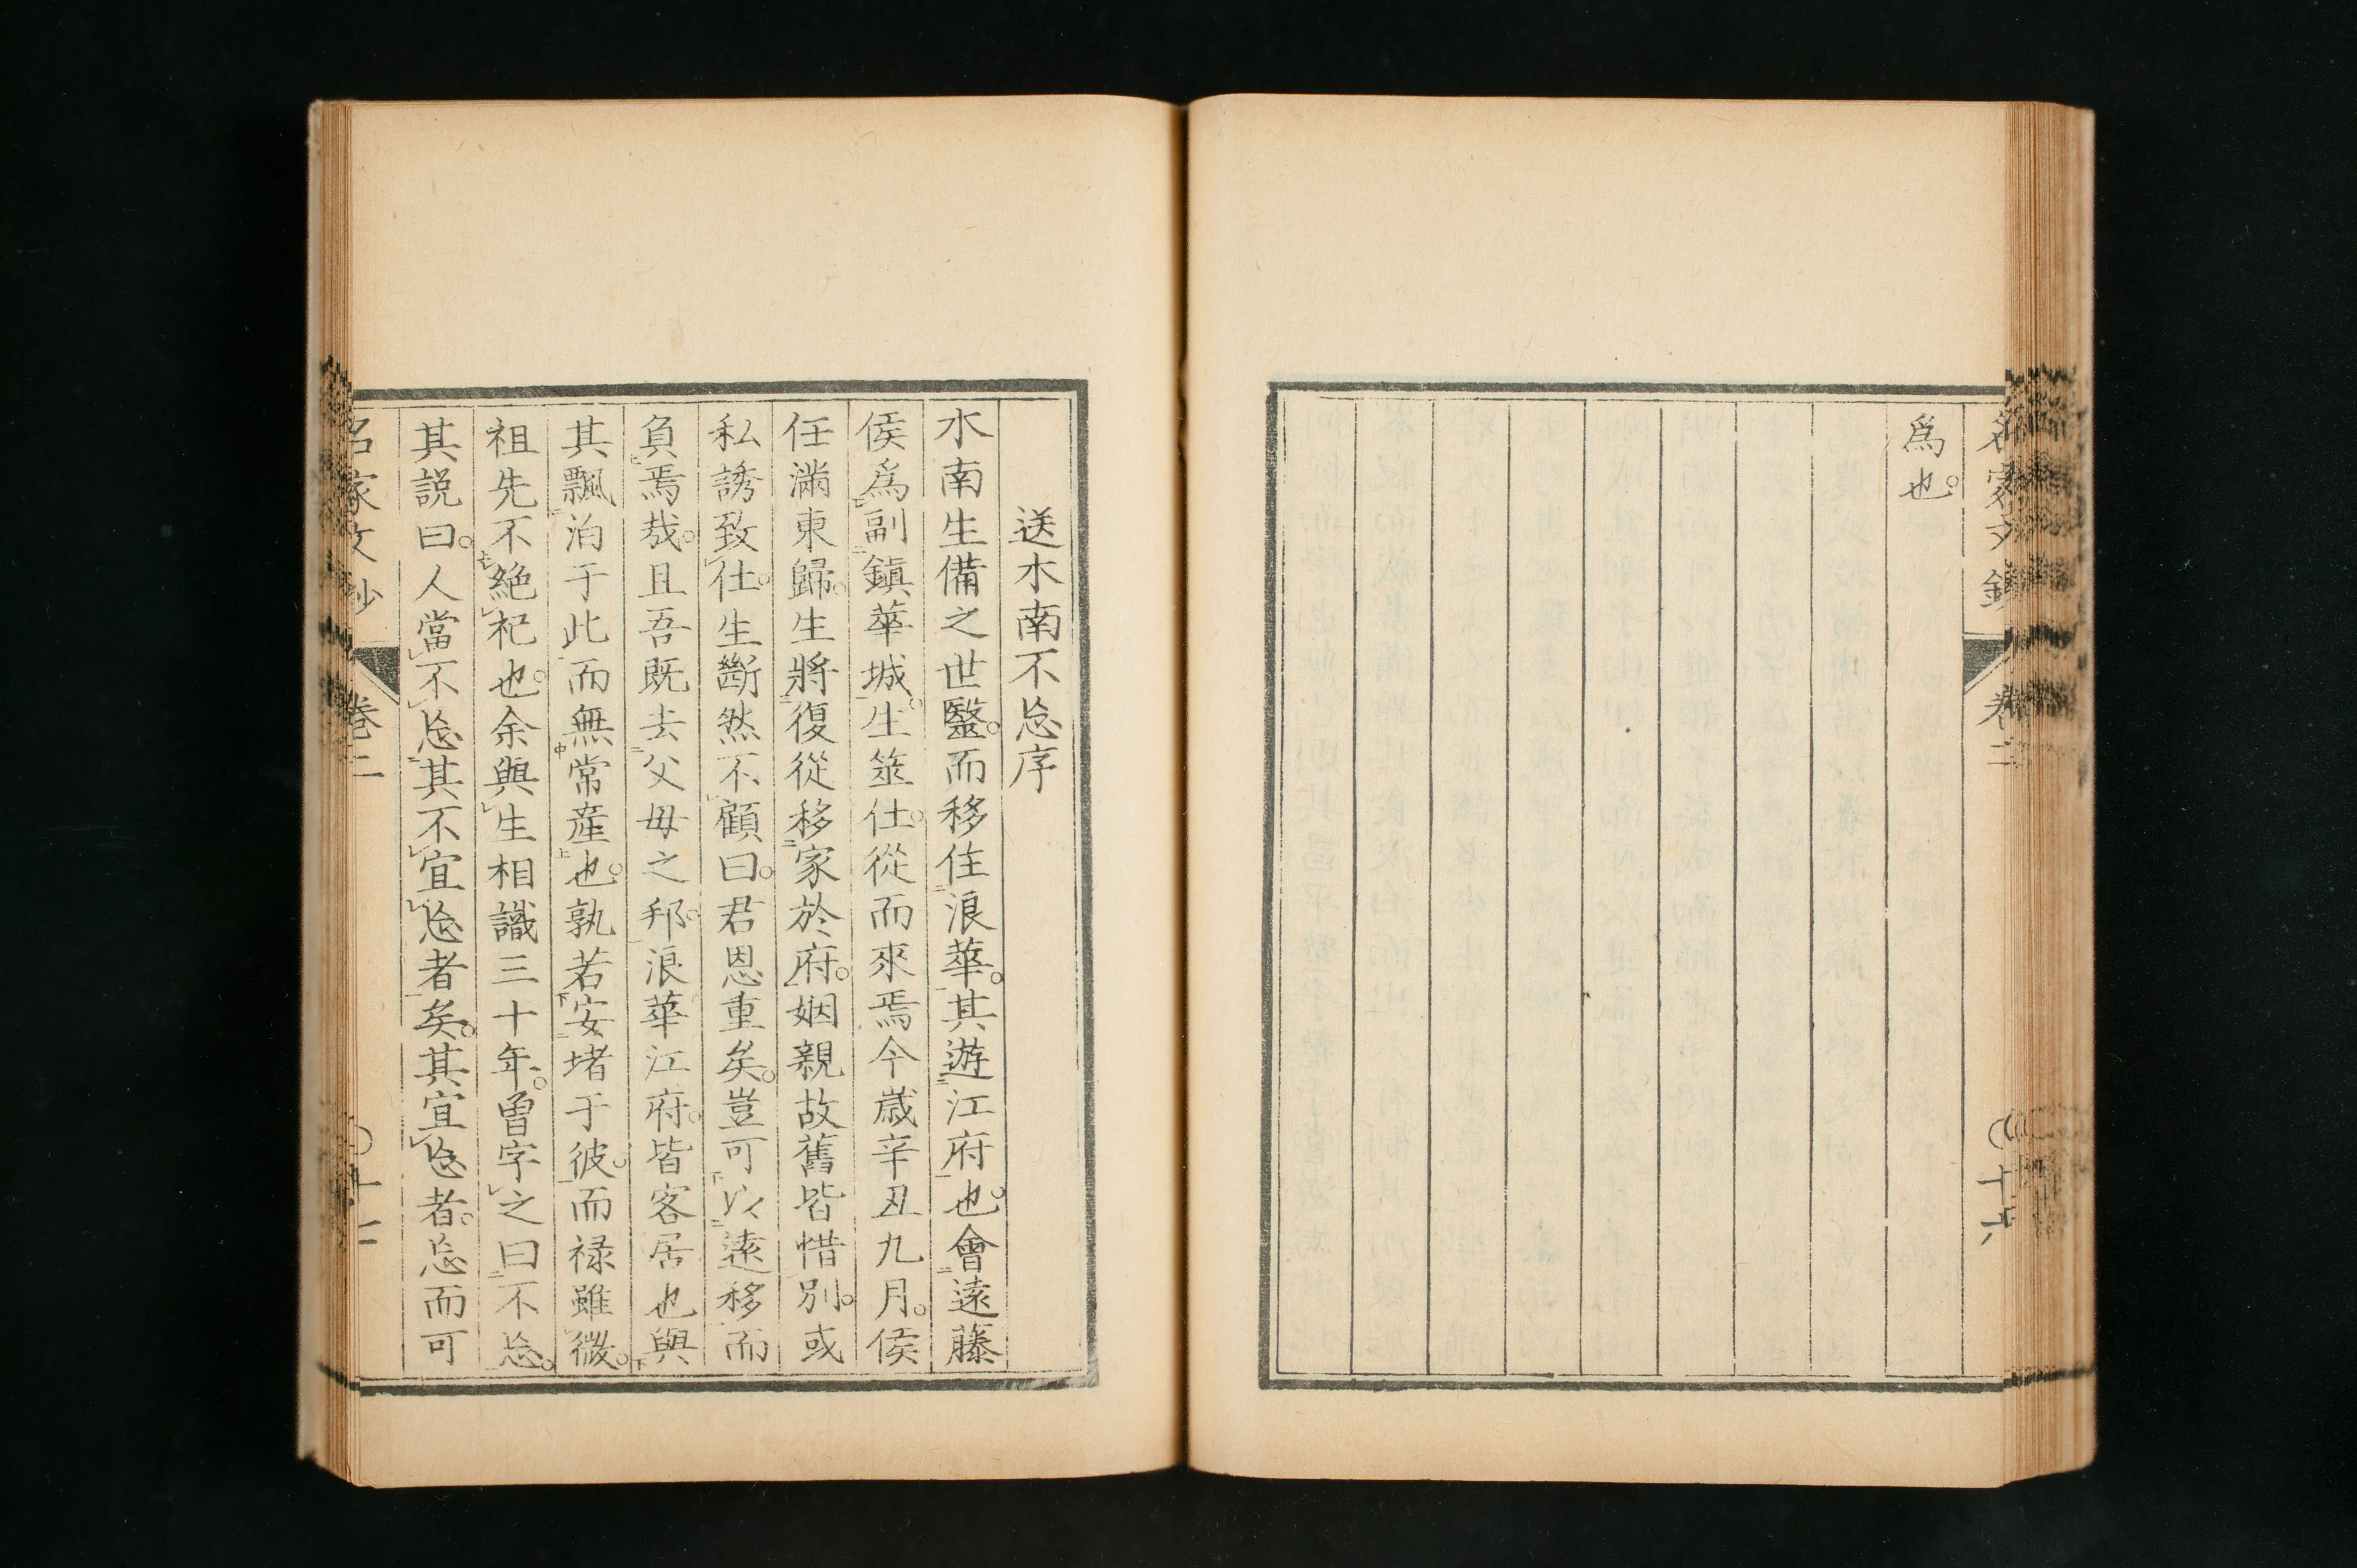 名家文鈔
卷二
〇十六
爲也。
送水南不忘序
水南生備之世醫。而移住浪華。其遊江府也。會遠藤
侯爲副鎮華城。生筮仕。從而來焉今歲辛丑九月。侯
任滿東歸。生將復從移家於府。姻親故舊皆惜別。或
私誘致仕。生斷然不顧曰。君恩重矣。豈可以遠移而
負焉哉。且吾既去父母之邦。浪華江府。皆客居也與
其飄泊于此而無常産也。孰若安堵于彼。而禄雖微。
祖先不絕祀也。余與生相識三十年。曾字之曰不忘。
其說曰。人當不忘其不宜忘者矣。其宜忘者。忘而可
名家文鈔
卷二